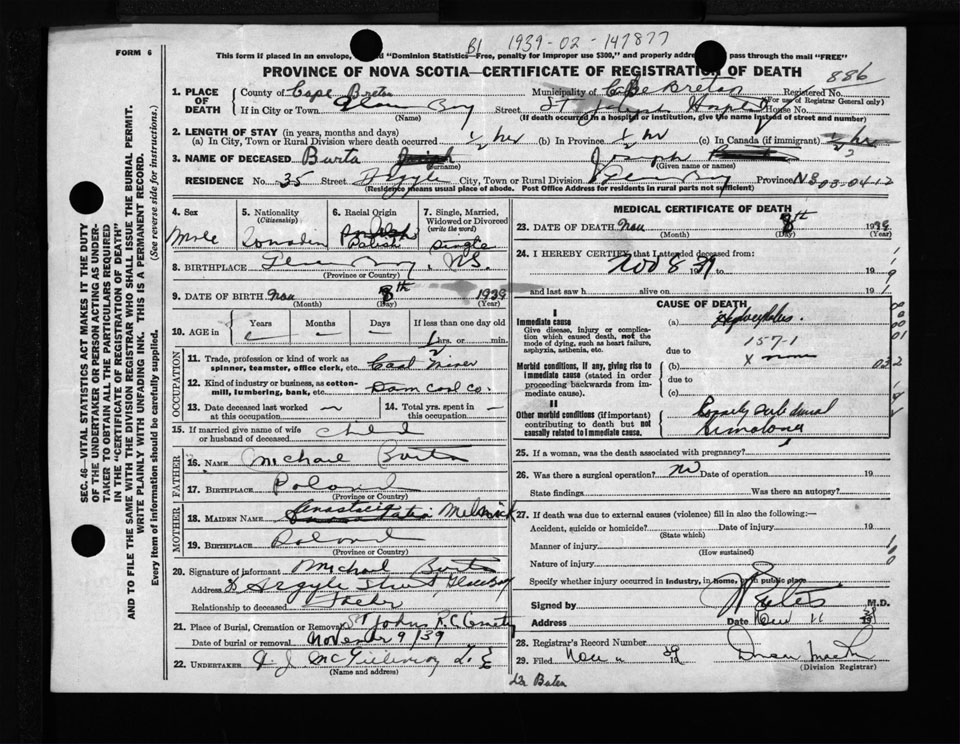 B1 1939-02-147877
FORM 6
This form if placed in an envelope, "Dominion Statistics—Free, penalty for improper use $300," and properly addre pass through the mail "FREE"
PROVINCE OF NOVA SCOTIA—CERTIFICATE OF REGISTRATION OF DEATH
886
1. PLACE OF DEATH County of Cape Breton Municipality of Cape Breton Registered No.
(For use of Registrar General only)
If in City or Town Glace Bay Street St Joseph Hospital House No.
(Name) (If death occurred in a hospital or institution, give the name instead of street and number)
2. LENGTH OF STAY (in years, months and days)
(a) In City, Town or Rural Division where death occurred ½ hr (b) In Province ½ hr (c) In Canada (if immigrant) ½ hr
3. NAME OF DECEASED Burta Joseph
(Surname) (Given name or names)
RESIDENCE No. 35 Street Argyle City, Town or Rural Division Glace Bay Province N S 03-04-12
(Residence means usual place of abode. Post Office Address for residents in rural parts not sufficient)
SEC. 46—VITAL STATISTICS ACT MAKES IT THE DUTY
OF THE UNDERTAKER OR PERSON ACTING AS UNDER-
TAKER TO OBTAIN ALL THE PARTICULARS REQUIRED
IN THE "CERTIFICATE OF REGISTRATION OF DEATH"
AND TO FILE THE SAME WITH THE DIVISION REGISTRAR WHO SHALL ISSUE THE BURIAL PERMIT.
WRITE PLAINLY WITH UNFADING INK. THIS IS A PERMANENT RECORD.
Every item of information should be carefully supplied. (See reverse side for instructions.)
4. Sex Male
5. Nationality (Citizenship) Canadian
6. Racial Origin Polish
7. Single, Married, Widowed or Divorced (write the word) Single
8. BIRTHPLACE Glace Bay, N.S.
(Province or Country)
9. DATE OF BIRTH Nov 8th 1939
(Month) (Day) (Year)
10. AGE in Years Months Days If less than one day old
½ hrs. or min.
OCCUPATION
11. Trade, profession or kind of work as spinner, teamster, office clerk, etc. Coal Miner
12. Kind of industry or business, as cotton-mill, lumbering, bank, etc. Dom Coal Co.
13. Date deceased last worked at this occupation
14. Total yrs. spent in this occupation
15. If married give name of wife or husband of deceased child
FATHER
16. NAME Michael Burta
17. BIRTHPLACE Poland
(Province or Country)
MOTHER
18. MAIDEN NAME Melnick
19. BIRTHPLACE Poland
(Province or Country)
20. Signature of informant Michael Burta
Address 35 Argyle Street Glace Bay
Relationship to deceased Father
21. Place of Burial, Cremation or Removal St Johns R C Cemetery
Date of burial or removal November 9/39
22. UNDERTAKER
(Name and address)
MEDICAL CERTIFICATE OF DEATH
23. DATE OF DEATH Nov 8th 1939
(Month) (Day) (Year)
24. I HEREBY CERTIFY that I attended deceased from:
Nov 8 39 19 to 19
and last saw h alive on 19
CAUSE OF DEATH
I
Immediate cause
Give disease, injury or complication which caused death, not the mode of dying, such as heart failure, asphyxia, asthenia, etc.
(a) Hydrocephalus.
157-1
due to
Morbid conditions, if any, giving rise to immediate cause (stated in order proceeding backwards from immediate cause).
(b)
due to
(c)
II
Other morbid conditions (if important) contributing to death but not causally related to immediate cause.
25. If a woman, was the death associated with pregnancy?
26. Was there a surgical operation? No Date of operation 19
State findings Was there an autopsy?
27. If death was due to external causes (violence) fill in also the following:—
Accident, suicide or homicide? Date of injury 19
(State which)
Manner of injury
(How sustained)
Nature of injury
Specify whether injury occurred in industry, in home, or in public place
Signed by M.D.
Address Date Nov 11 1939
28. Registrar's Record Number
29. Filed Nov 39
(Division Registrar)